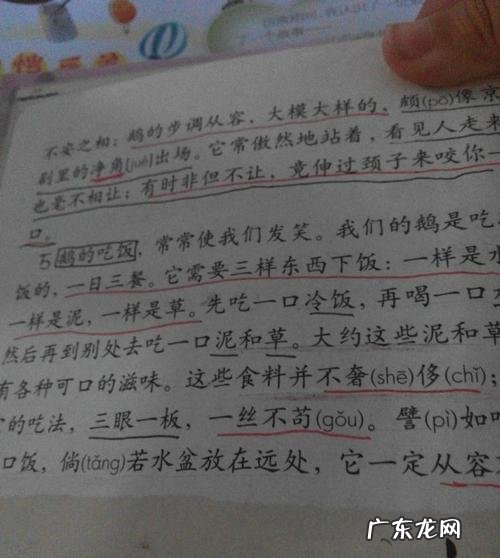 不安之相；鹅的步调从容，大模大样的，颇(pō)像京
剧里的净角(jué)出场。它常傲然地站着，看见人走来
也毫不相让；有时非但不让，竟伸过颈子来咬你一
口。
5 鹅的吃饭，常常使我们发笑。我们的鹅是吃
饭的，一日三餐。它需要三样东西下饭：一样是水
一样是泥，一样是草。先吃一口冷饭，再喝一口
然后再到别处去吃一口泥和草。大约这些泥和草
有各种可口的滋味。这些食料并不奢(shē)侈(chǐ)；
的吃法，三眼一板，一丝不苟(gǒu)。譬(pì)如吃
口饭，倘(tǎng)若水盆放在远处，它一定从容
广东龙网